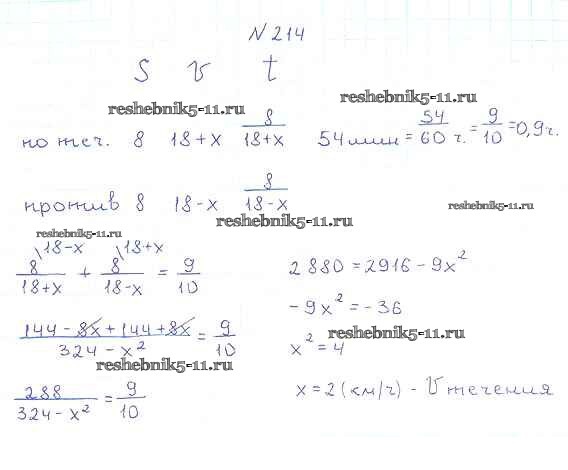 N 214
S v t
reshebnik5-11.ru reshebnik5-11.ru
по теч. 8 18+x 8/(18+x) 54 мин = 54/60 ч. = 9/10 = 0,9 ч.
против 8 18-x 8/(18-x)
reshebnik5-11.ru reshebnik5-11.ru
reshebnik5-11.ru
8\18-x/(18+x) + 8\18+x/(18-x) = 9/10
(144-8x+144+8x)/(324-x²) = 9/10
reshebnik5-11.ru
288/(324-x²) = 9/10
2880=2916-9x²
-9x²=-36
reshebnik5-11.ru
x²=4
x=2 (км/ч) - V течения